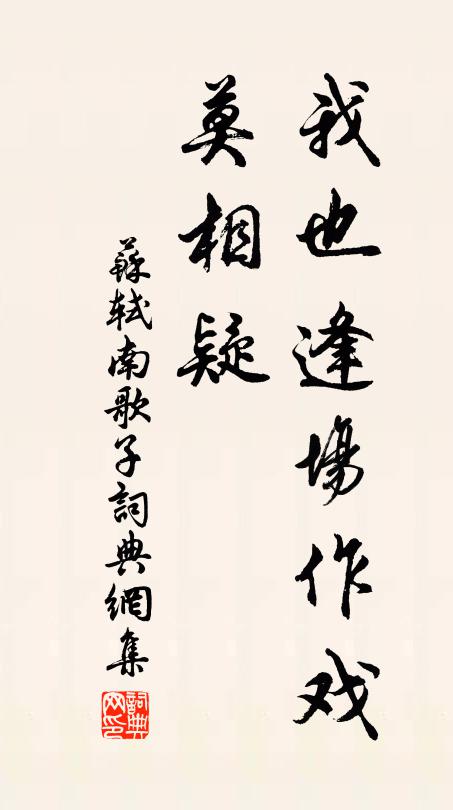 我也逢場作戏
莫相疑
蘇軾南歌子詞典網集
詞典
网印